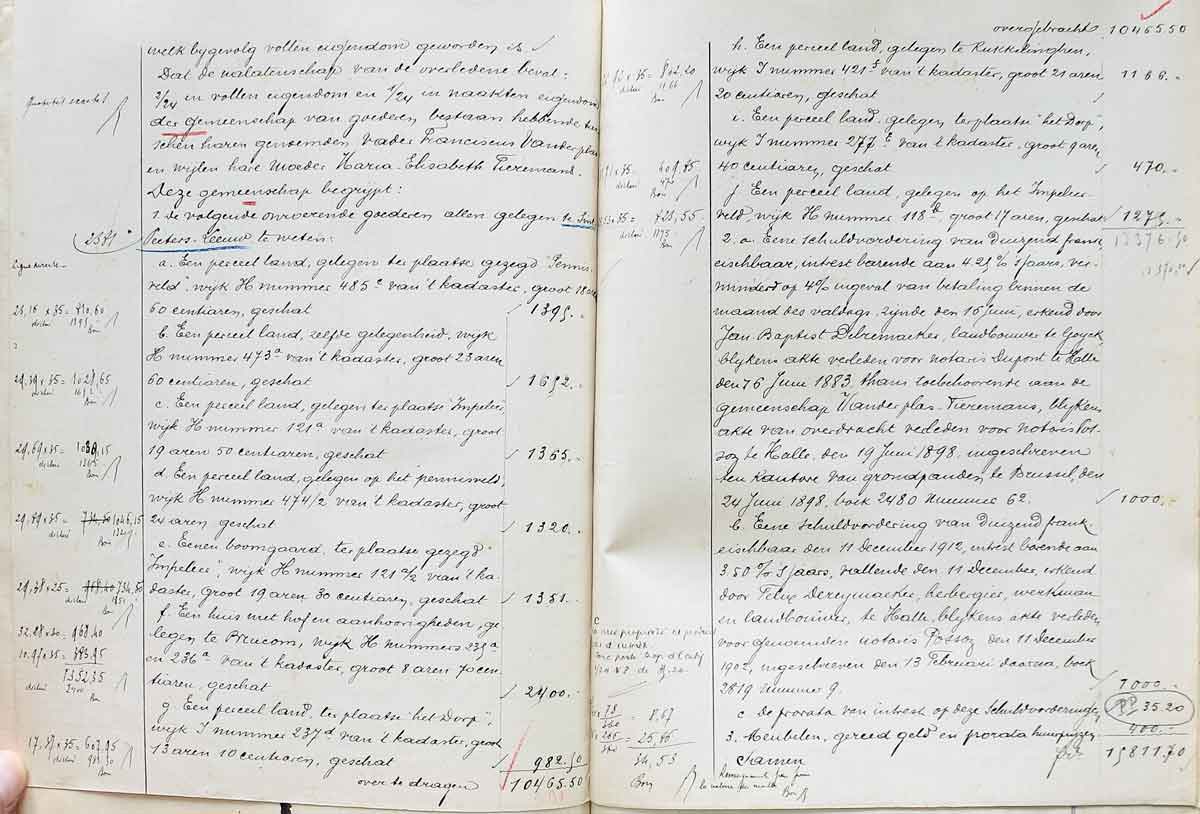 welk bygevolg vollen eigendom geworden is.
Dat de nalatenschap van de overledene bevat:
3/24 in vollen eigendom en 1/24 in naakten eigendom
der gemeenschap van goederen bestaan hebbende tus
schen haren genoemden Vader Franciscus Vanderplas
en wijlen hare Moeder Maria-Elisabeth Tieremans.
Deze gemeenschap begrypt:
1. de volgende onroerende goederen allen gelegen te Sint
Peeters-Leeuw te weten:
a. Een perceel land, gelegen ter plaatse gezegd "Pennis
veld", wijk H nummer 485c van 't kadaster, groot 18 aren
60 centiaren, geschat 1395.-
b. Een perceel land, zelfde gelegenheid, wijk
H nummer 473a van 't kadaster, groot 23 aren
60 centiaren, geschat 1692.-
c. Een perceel land, gelegen ter plaatse "Impeleer",
wijk H nummer 121a van 't kadaster, groot
19 aren 50 centiaren, geschat 1365.-
d. Een perceel land, gelegen op het pennisveld,
wijk H nummer 474/2 van 't kadaster, groot
24 aren, geschat 1320.-
e. Eenen boomgaard, ter plaatse gezegd
"Impeleer", wijk H nummer 121 a/2 van 't ka-
daster, groot 19 aren 30 centiaren, geschat 1351.-
f. Een huis met hof en aanhoorigheden, ge
legen te Brucom, wijk H nummers 235a
en 236a van 't kadaster, groot 8 aren 70 cen
tiaren, geschat 2400.-
g. Een perceel land, ter plaatse "het Dorp",
wijk I nummer 237d van 't kadaster, groot
13 aren 10 centiaren, geschat 982.50
over te dragen 10465.50
2581
Ligne directe
29,69 x 35 =
32.28 x 30 = 968.40
10.97 x 35 = 383.95
1352,35
2400
17.37 x 35 = 607.95
overgebracht 10465.50
h. Een perceel land, gelegen te Rukkelinghen,
wijk I nummer 421f van 't kadaster, groot 21 aren 1166.-
20 centiaren, geschat
i. Een perceel land, gelegen ter plaatse "het Dorp",
wijk I nummer 277c van 't kadaster, groot 9 aren
40 centiaren, geschat 470.-
j Een perceel land, gelegen op het Impeleer-
veld, wijk H nummer 118b, groot 17 aren, geschat 1275.-
13376.50
2. a. Eene schuldvordering van duizend frank
eischbaar, intrest barende aan 4.25% 's jaars, ver-
minderd op 4% ingeval van betaling binnen de
maand des valdags, zijnde den 15 Juni, erkend door
Jan Baptist Debremaeker, landbouwer te Goyck,
blijkens akte verleden voor notaris Dupont te Halle
den 16 Juni 1883, thans toebehoorende aan de
gemeenschap Vanderplas-Tieremans, blijkens
akte van overdracht verleden voor notaris Pos-
soz te Halle, den 19 Juni 1898, ingeschreven
ten kantore van grondpanden te Brussel, den
24 Juni 1898, boek 2480 nummer 62. 1000.-
b. Eene schuldvordering van duizend frank
eischbaar den 11 December 1912, intrest barende aan
3.50% 's jaars, vallende den 11 December, erkend
door Felix Dereymaeker, herbergier, werkman
en landbouwer, te Halle, blijkens akte verleden
voor genoemden notaris Possoz den 11 December
1902, ingeschreven den 13 Februari daarna, boek
2819 nummer 9. 1000.-
c de prorata van intrest op deze schuldvorderingen 35.20
3. Meubelen, gereed geld en prorata huurprijzen 400.-
Samen fr 15811.70
8,67
25,86
34,53
Bon